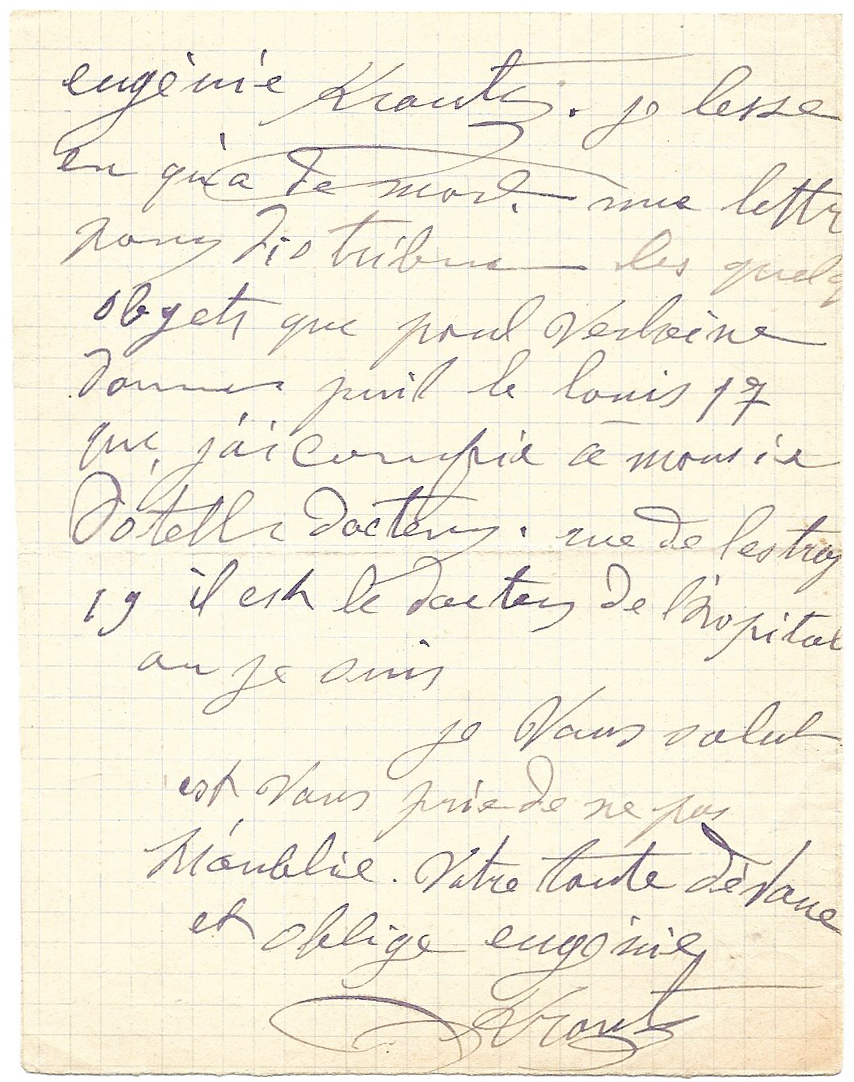 eugènie Krantz. je lesse
en qu'a de mort. une lettr
pour distribue les quelq
objets que poul Verlaine
donner puil le louis 17
que j'ai confie à monsie
Dotelle docteur. rue de lestrap
19 il est le docteur de l'hopital
au je suis
je Vous salut
est Vous prie de ne pas
M'oublie. Votre toute dèvoue
et oblige eugènie
Krantz